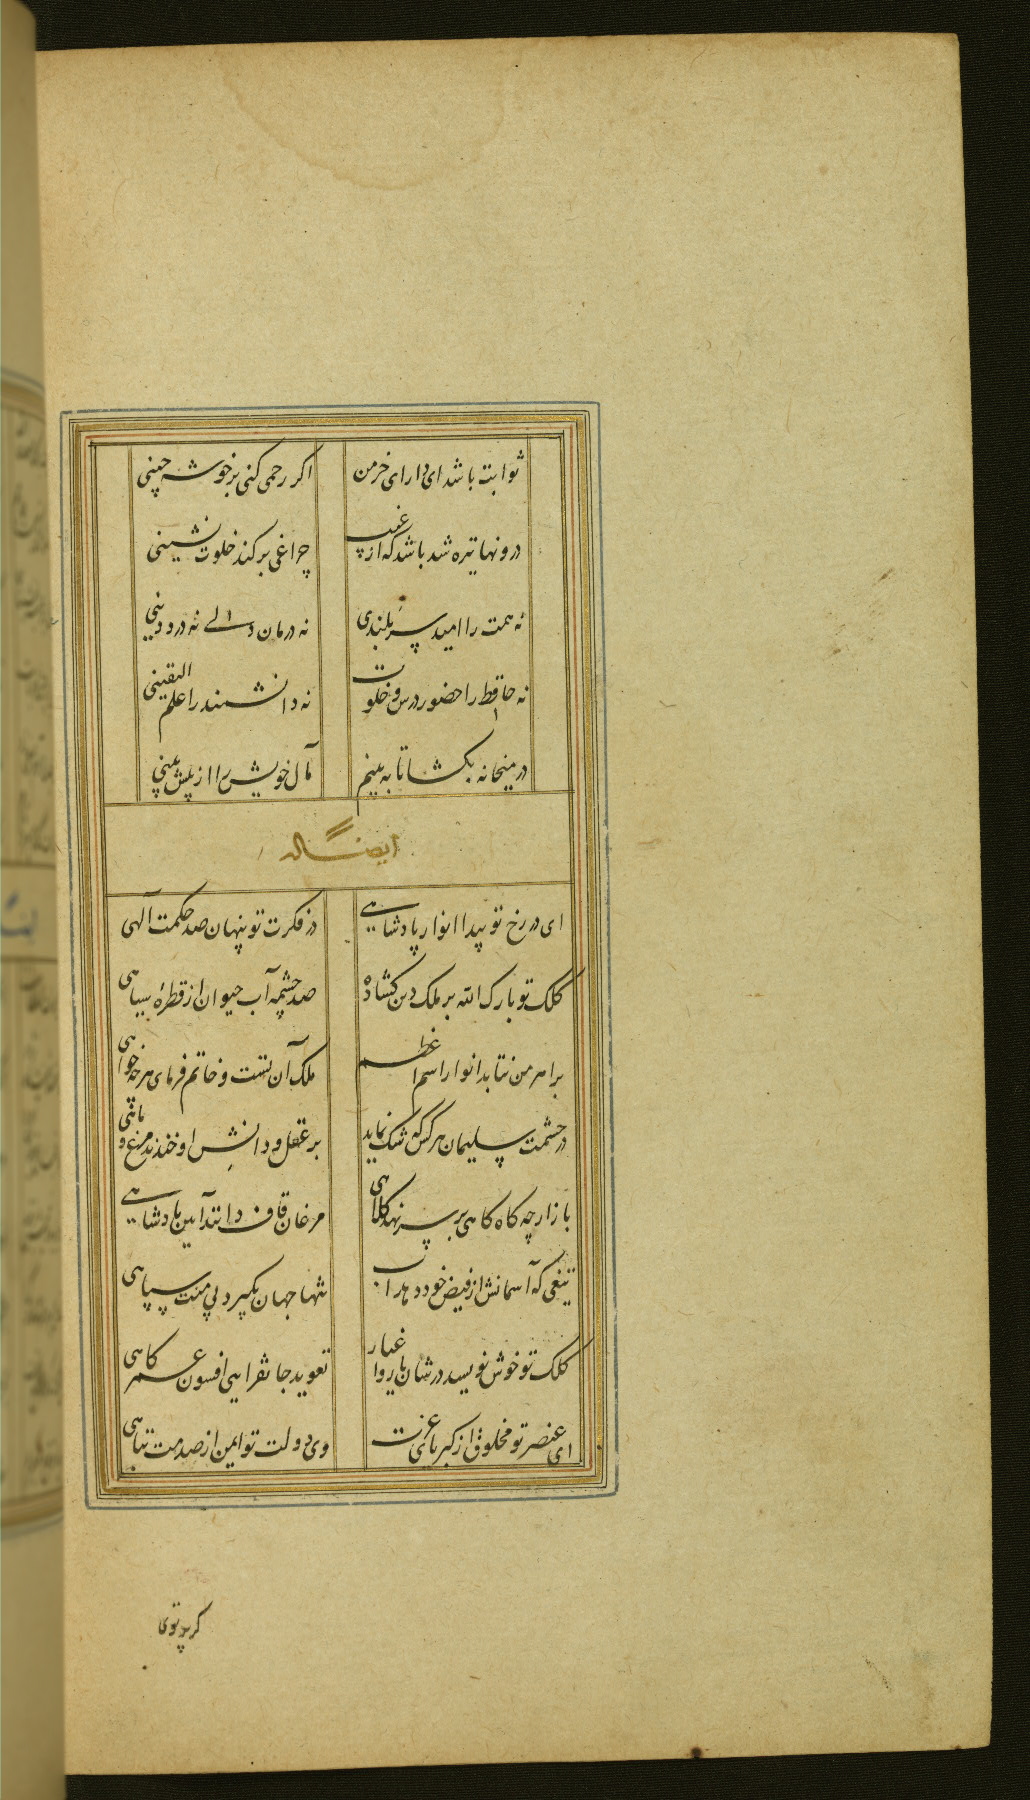 ثوابت باشد ای دارای خرمن اکر رحمی کنی بر خوشه چینی
درونها تیره شد باشد که از غیب چراغی بر کند خلوت نشینی
نه همت را امید سربلندی نه درمان دلی نه درد دینی
نه حافظ را حضور درس و خلوت نه دانشمند را علم الیقینی
در میخانه بکشا تا به بینم مآل خویش را از پیش بینی
ایضا له
ای در رخ تو پیدا انوار پادشاهی در فکرت تو پنهان صد حکمت آلهی
کلک تو بارک الله بر ملک دین کشاده صد چشمه آب حیوان از قطرهٔ سیاهی
بر اهرمن نتابد انوار اسم اعظم ملک آن تست و خاتم فرمای هرچه خواهی
در حشمت سلیمان هر کس که شک نماید بر عقل و دانش او خندند مرغ و ماهی
باز ارچه کاه کاهی بر سر نهد کلاهی مرغان قاف دانند آیین پادشاهی
تیغی که آسمانش از فیض خود دهد آب تنها جهان بکیرد بی منت سپاهی
کلک تو خوش نویسد در شان یار و اغیار تعوید جانفرایی افسون عمر کاهی
ای عنصر تو مخلوق از کبریا عزت وی دولت تو ایمن از صدمت تباهی
کر پرتوی